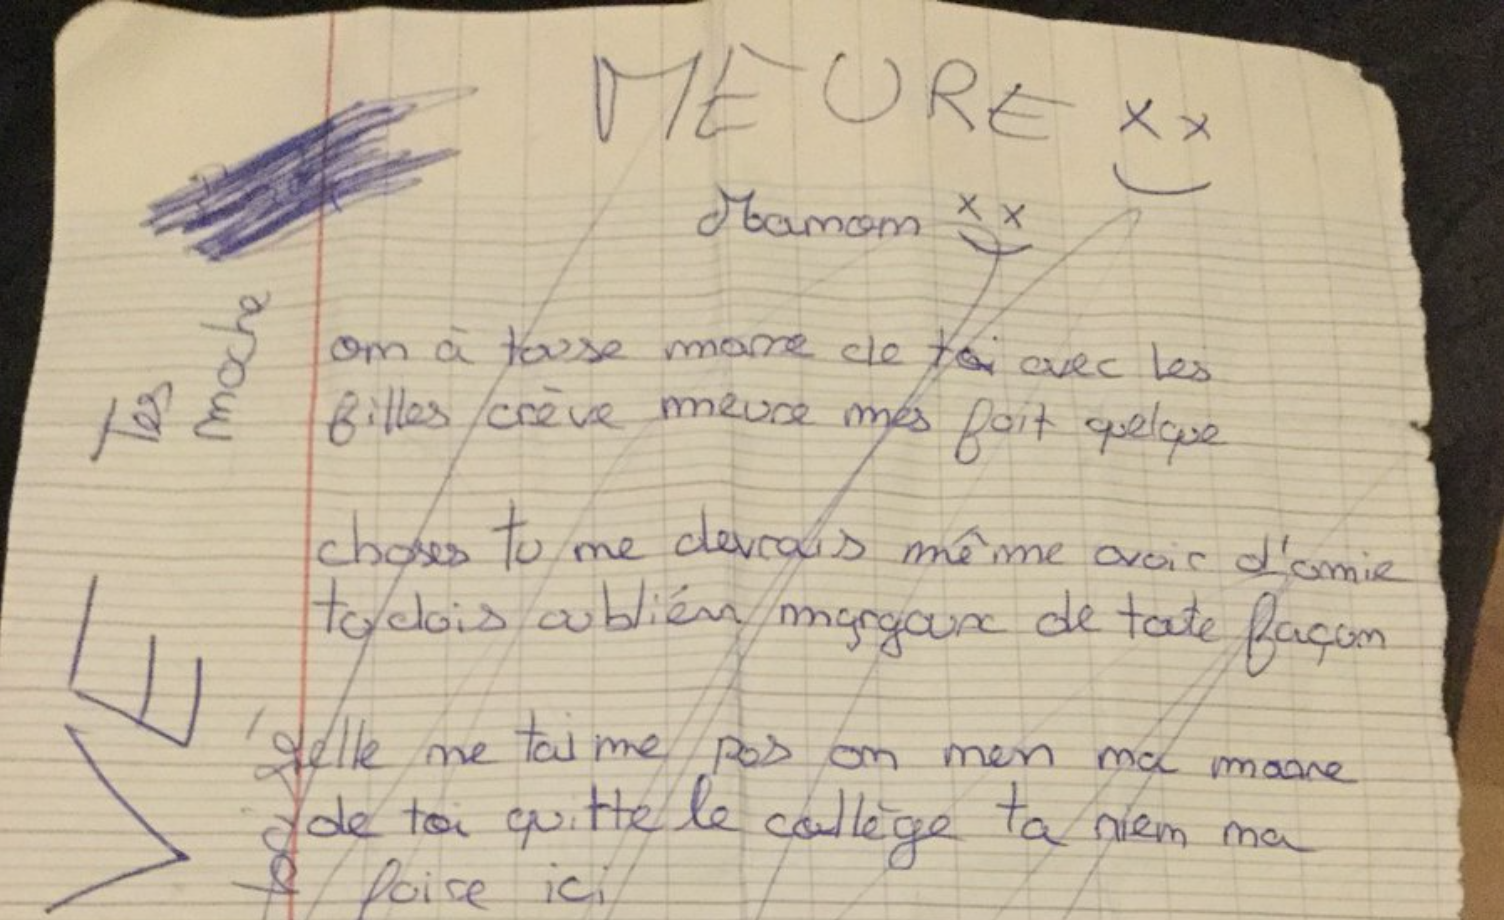 MEURE
Manon
Tes
moche
on à touse marre de toi avec les
filles crève meure mes fait quelque
choses tu me devrais même avoir d'amie
tu dois oubliér margaux de toute façon
elle ne taime pas on men ma marre
de toi quitte le collège ta rien ma
foire ici